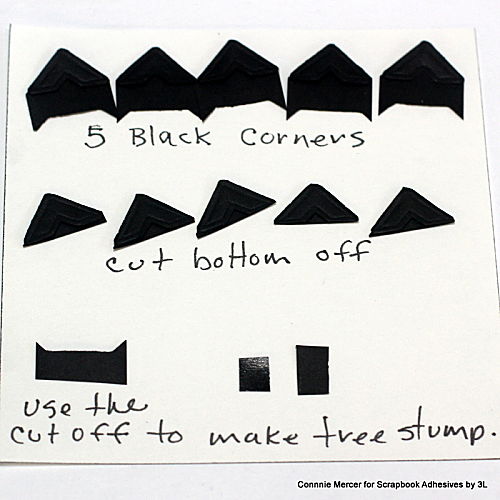 5 Black Corners
cut bottom off
use the
cut off to make tree stump.
Connnie Mercer for Scrapbook Adhesives by 3L